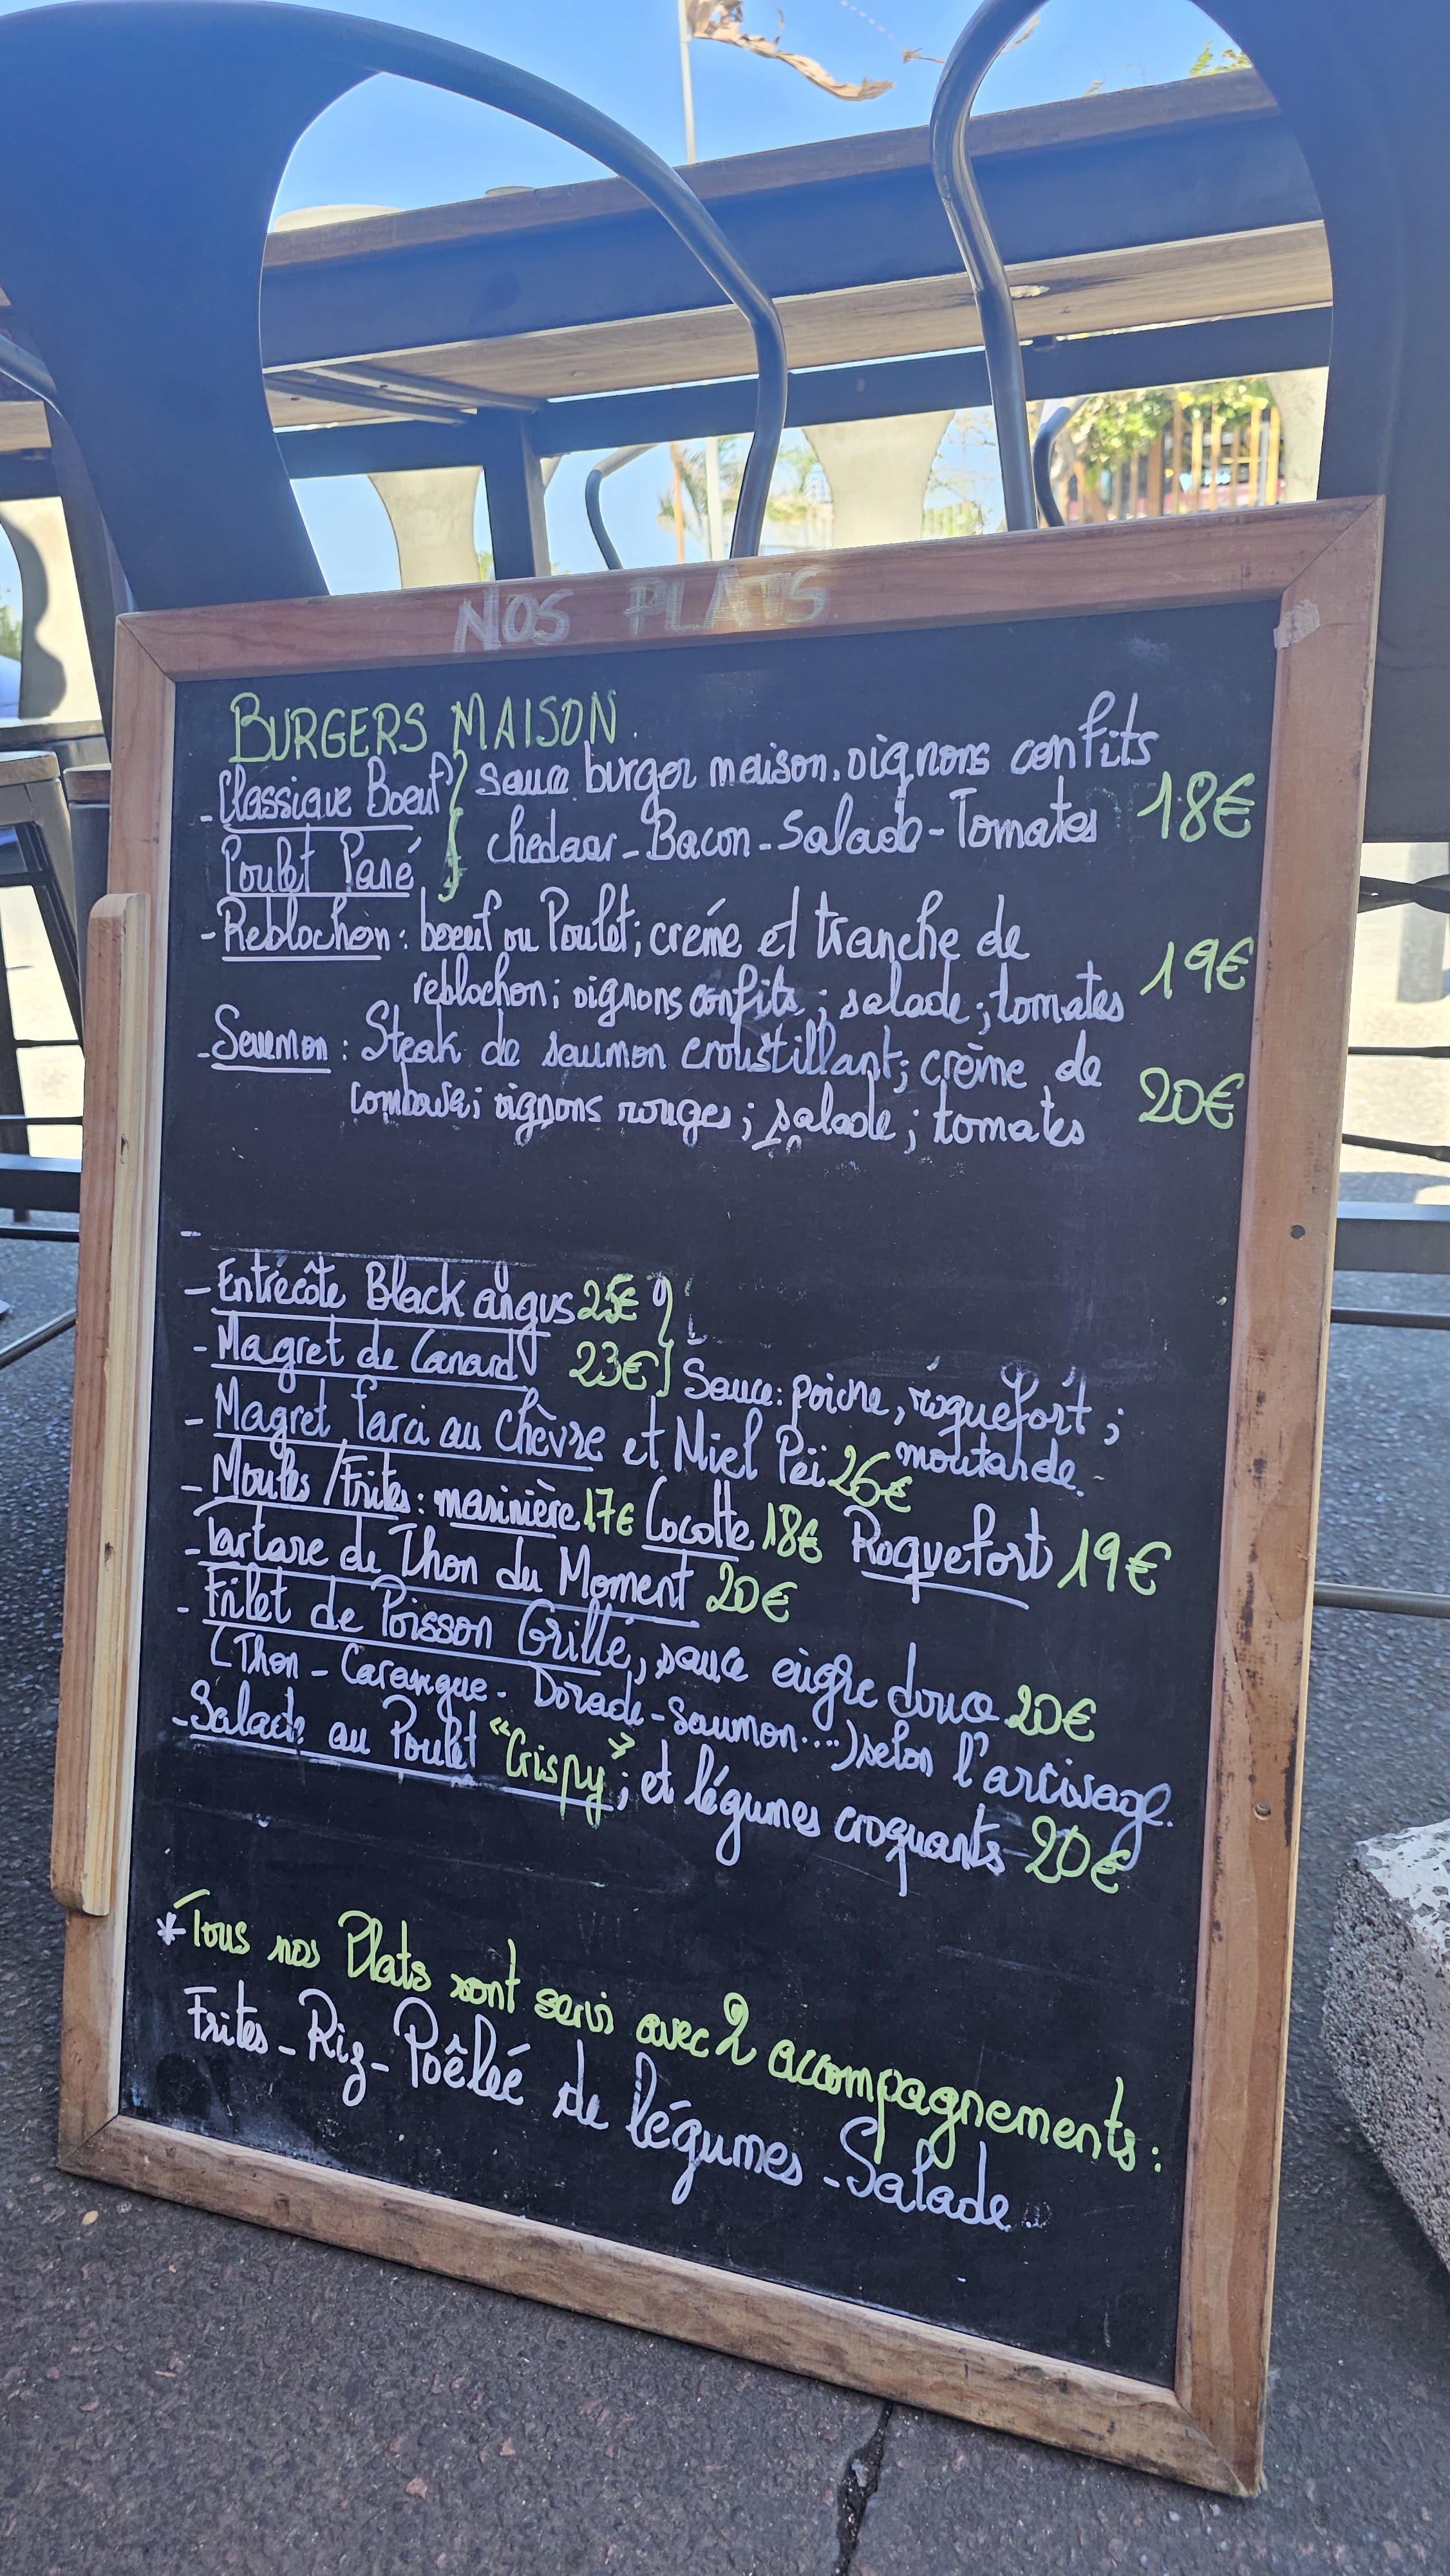 NOS PLATS
BURGERS MAISON
- Classique Boeuf } sauce burger maison, oignons confits
Poulet Pané chedaar - Bacon - Salade - Tomates 18€
- Reblochon : boeuf ou Poulet ; crème et tranche de
reblochon ; oignons confits ; salade ; tomates 19€
- Saumon : Steak de saumon croustillant ; crème de
combava ; oignons rouges ; salade ; tomates 20€
- Entrécôte Black angus 25€
- Magret de Canard 23€ } Sauce : poivre, roquefort ;
moutarde.
- Magret farci au Chèvre et Miel Péi 26€
- Moules / Frites : marinière 17€ Cocotte 18€ Roquefort 19€
- Tartare de Thon du Moment 20€
- Filet de Poisson Grillé, sauce aigre douce 20€
(Thon - Carangue - Dorade - Saumon....) selon l'arrivage.
- Salade au Poulet "Crispy" ; et légumes croquants 20€
* Tous nos Plats sont servis avec 2 accompagnements :
Frites - Riz - Poêleé de légumes - Salade